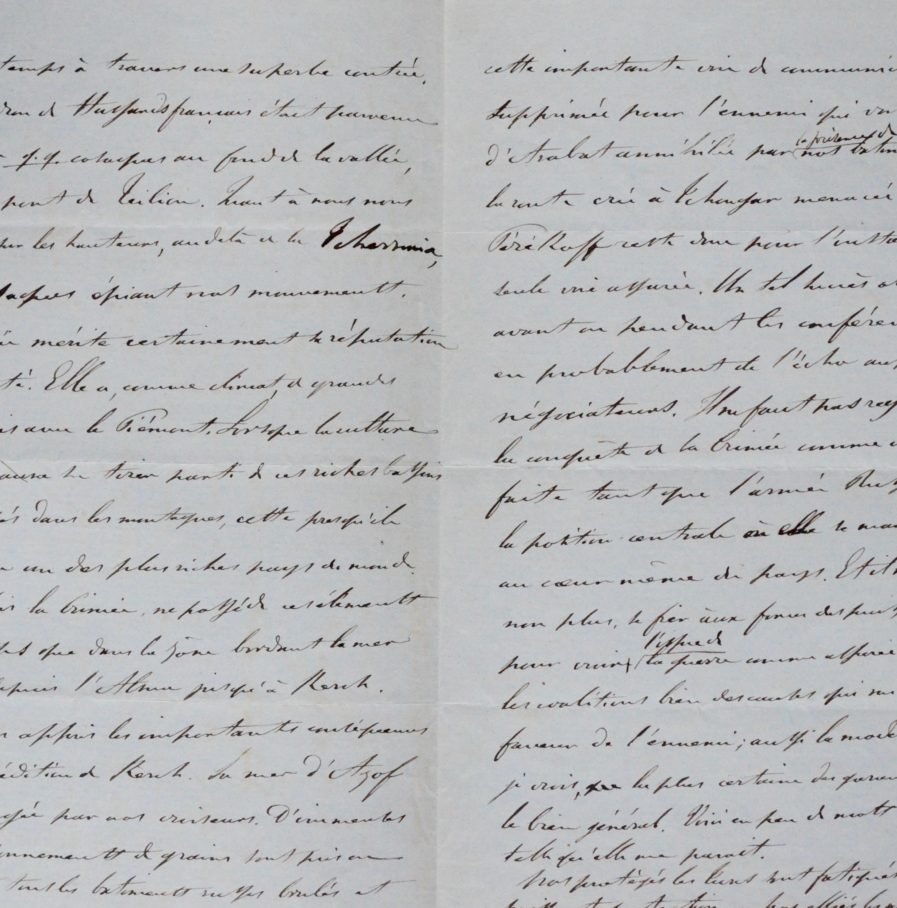 temps à travers une superbe contrée.
de Hussards français était parvenu
q.q. cosaques au fond de la vallée,
pont de Quant à nous nous
les hauteurs, au delà de la Tchernaia,
épiant nos mouvements.
mérite certainement sa réputation
Elle a, comme climat, de grandes
avec le Piémont. Lorsque la culture
tirer parti de ces riches bassins
dans les montagnes, cette presqu'ile
un des plus riches pays du monde.
la Crimée, ne possède ces éléments
que dans la zône bordant la mer
depuis l'Alma jusqu'à Kerch.
appris les importantes conséquences
de Kerch. La mer d'Azof
par nos croiseurs. D'immenses
de grains sont pris ou
tous les bâtiments russes brulés et
cette importante voie de communic
supprimée pour l'ennemi qui
la présence de
d'Arabat annihilée par nos batim
la route créé à Tchongar menacée
Pérékoff reste donc pour l'insta
seule voie assurée. Un tel succès
avant ou pendant les conféren
probablement de l'écho
négociateurs. Il ne faut pas reg
la conquête de la Crimée comme
faite tant que l'armée Rus
la position centrale où elle se
au cœur même du pays. Et il
non plus, se fier aux forces des puis
l'issue de
pour croire la guerre comme assurée
les coalitions bien des causes qui
faveur de l'ennemi; aussi la
je crois, que la plus certaine des garan
le bien général. Voici en peu de mots
telle qu'elle me parait.
Nos protégés les Turcs sont fatigués